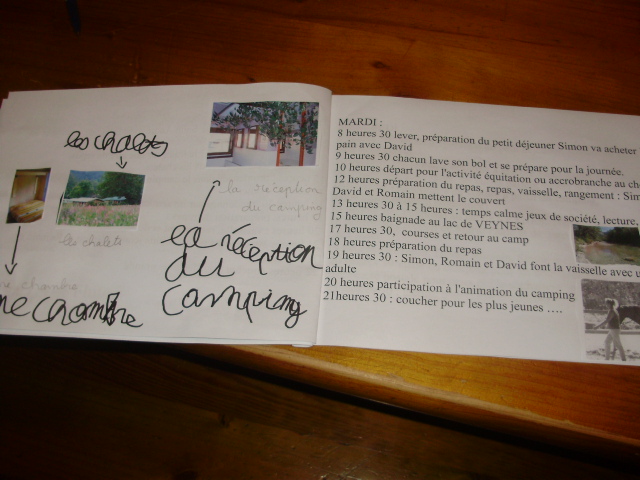 les chalets
les chalets
chambre
ne chambre
la réception
du camping
la réception
du
camping
MARDI :
8 heures 30 lever, préparation du petit déjeuner Simon va acheter
pain avec David
9 heures 30 chacun lave son bol et se prépare pour la journée.
10 heures départ pour l'activité équitation ou accrobranche au ch
12 heures préparation du repas, repas, vaisselle, rangement : Sim
David et Romain mettent le couvert
13 heures 30 à 15 heures : temps calme jeux de société, lecture,
15 heures baignade au lac de VEYNES
17 heures 30, courses et retour au camp
18 heures préparation du repas
19 heures 30 : Simon, Romain et David font la vaisselle avec u
adulte
20 heures participation à l'animation du camping
21heures 30 : coucher pour les plus jeunes ….